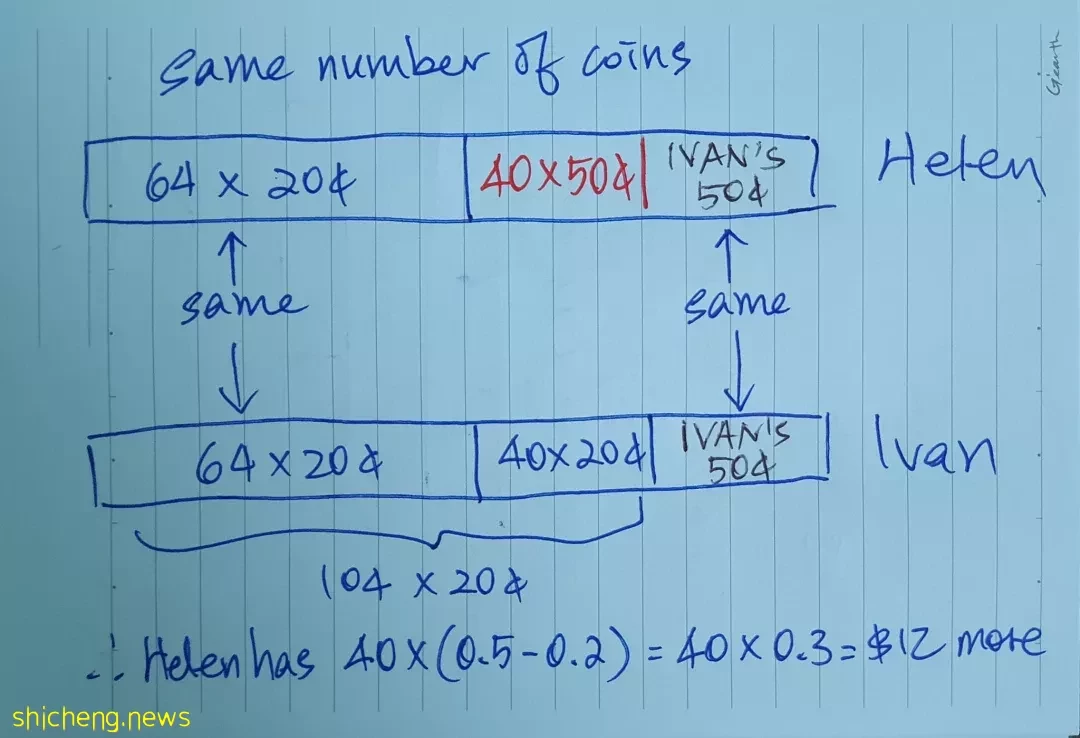 same number of coins
64 x 20¢ 40x50¢ IVAN'S 50¢ Helen
same same
64x20¢ 40x20¢ IVAN'S 50¢ Ivan
104 x 20¢
∴ Helen has 40x(0.5-0.2) = 40 x 0.3 = $12 more
shicheng.news